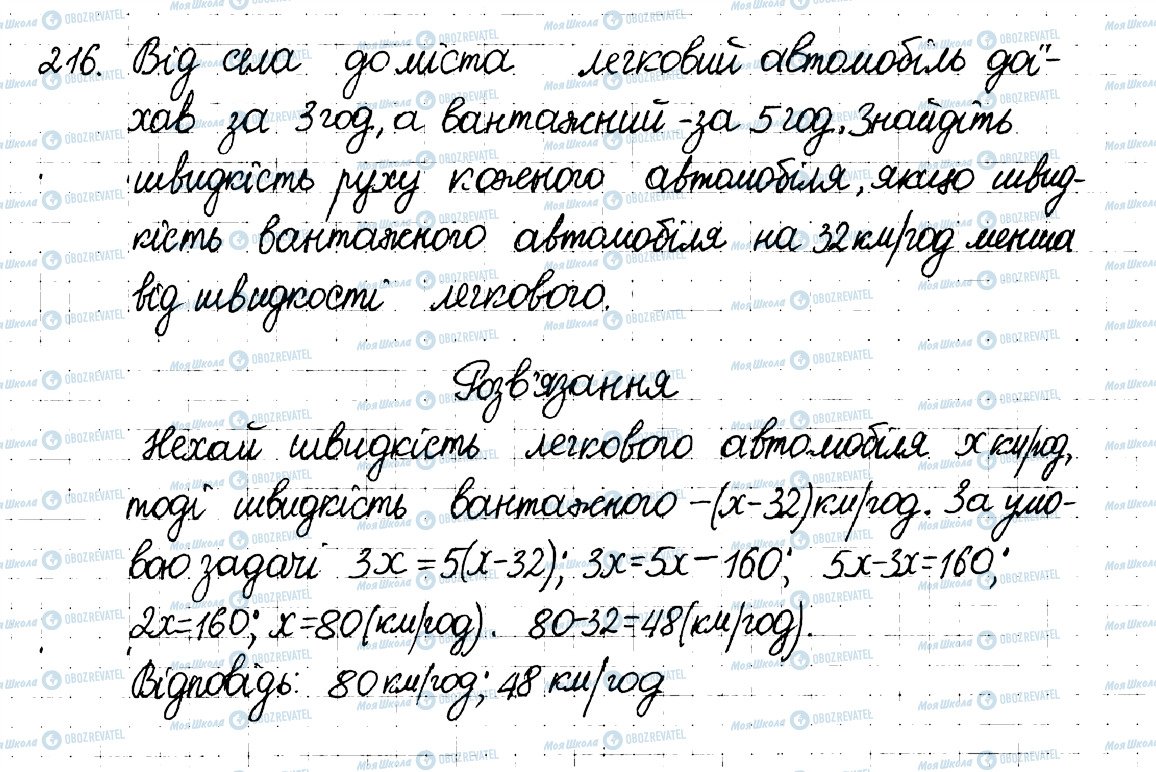 216. Від села до міста легковий автомобіль дої-
хав за 3 год, а вантажний - за 5 год. Знайдіть
швидкість руху кожного автомобіля, якщо швид-
кість вантажного автомобіля на 32 км/год менша
від швидкості легкового.
Розв'язання
Нехай швидкість легкового автомобіля x км/год,
тоді швидкість вантажного – (x-32) км/год. За умо-
вою задачі 3x = 5(x-32); 3x = 5x – 160; 5x-3x=160;
2x=160; x=80(км/год). 80-32=48(км/год).
Відповідь: 80 км/год; 48 км/год